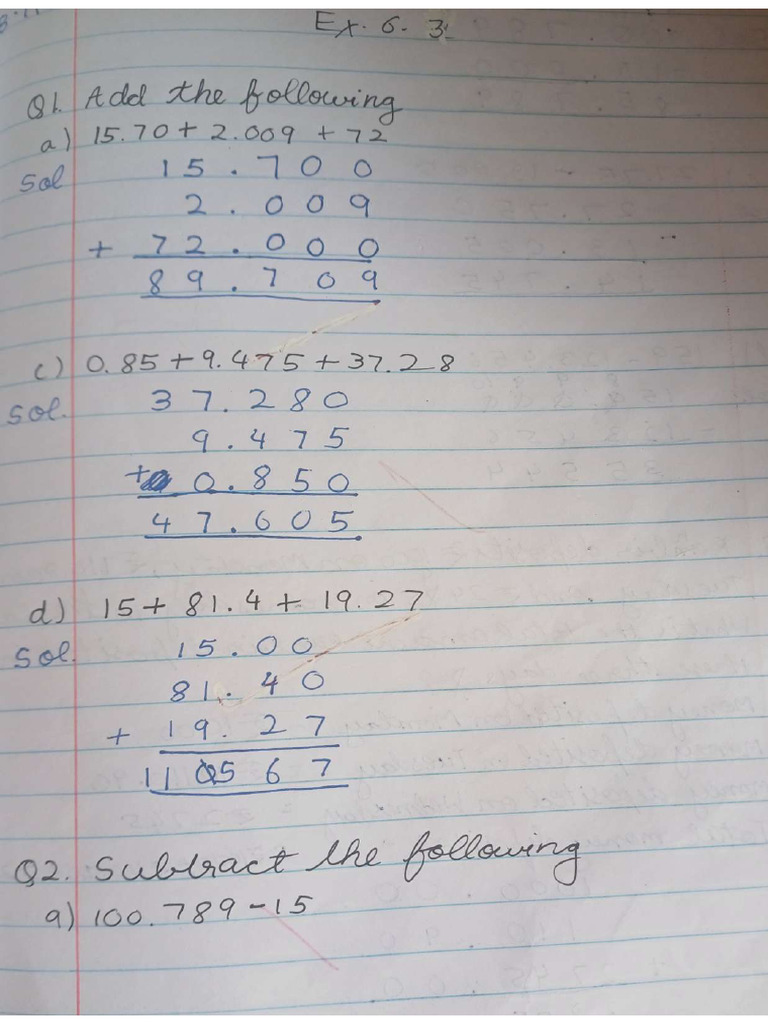 Ex. 6. 3.
Q1. Add the following
a) 15.70 + 2.009 + 72
Sol 15.700
2.009
+ 72.000
89.709
c) 0.85 + 9.475 + 37.28
Sol. 37.280
9.475
+ 0.850
47.605
d) 15 + 81.4 + 19.27
Sol. 15.00
81.40
+ 19.27
115 67
Q2. Subtract the following
a) 100.789 - 15